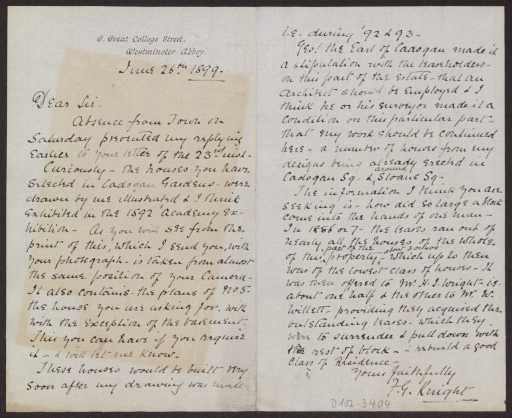 6. Great College Street,
Westminster Abbey.
June 26th 1899.
Dear Sir.
Absence from Town on
Saturday prevented my replying
Earlier to your letter of the 23rd inst.
Curiously - the houses you have
Selected in Cadogan Gardens - were
drawn by me illustrated & I think
Exhibited in the 1892 Academy Ex-
hibition - As you will see from the
print of this, which I send you, with
your photograph - is taken from almost
the same position of your Camera -
It also contains - the plans of No 105
the house you are asking for, with
with the exception of the basement.
This you can have if you require
it - & will let me know.
These houses would be built very
soon after my drawing was made
i.e. during '92 & 93 -
Geo! the Earl of Cadogan made it
a stipulation with the leaseholders -
on this part of the Estate - that an
Architect should be Employed & I
think he or his Surveyor made it a
condition on this particular part -
that my work should be continued
here - a number of houses from my
designs being already erected in
Cadogan Sq. & around Sloane Sq.
The information I think you are
seeking is - how did so large a block
come into the hands of one man -
In 1886 or 7 - the leases ran out of
nearly all the houses of the whole
of this property - which up to then
was of the lowest class of houses - It
was then offered to Mr. H. J. Wright is
about one half & the other to Mr. W.
Willett - providing they acquired the
outstanding leases - which they
were to surrender & pull down with
the rest of block - & rebuild a good
Class of Residence -
Yours faithfully
T. G. Knight
0102-3404